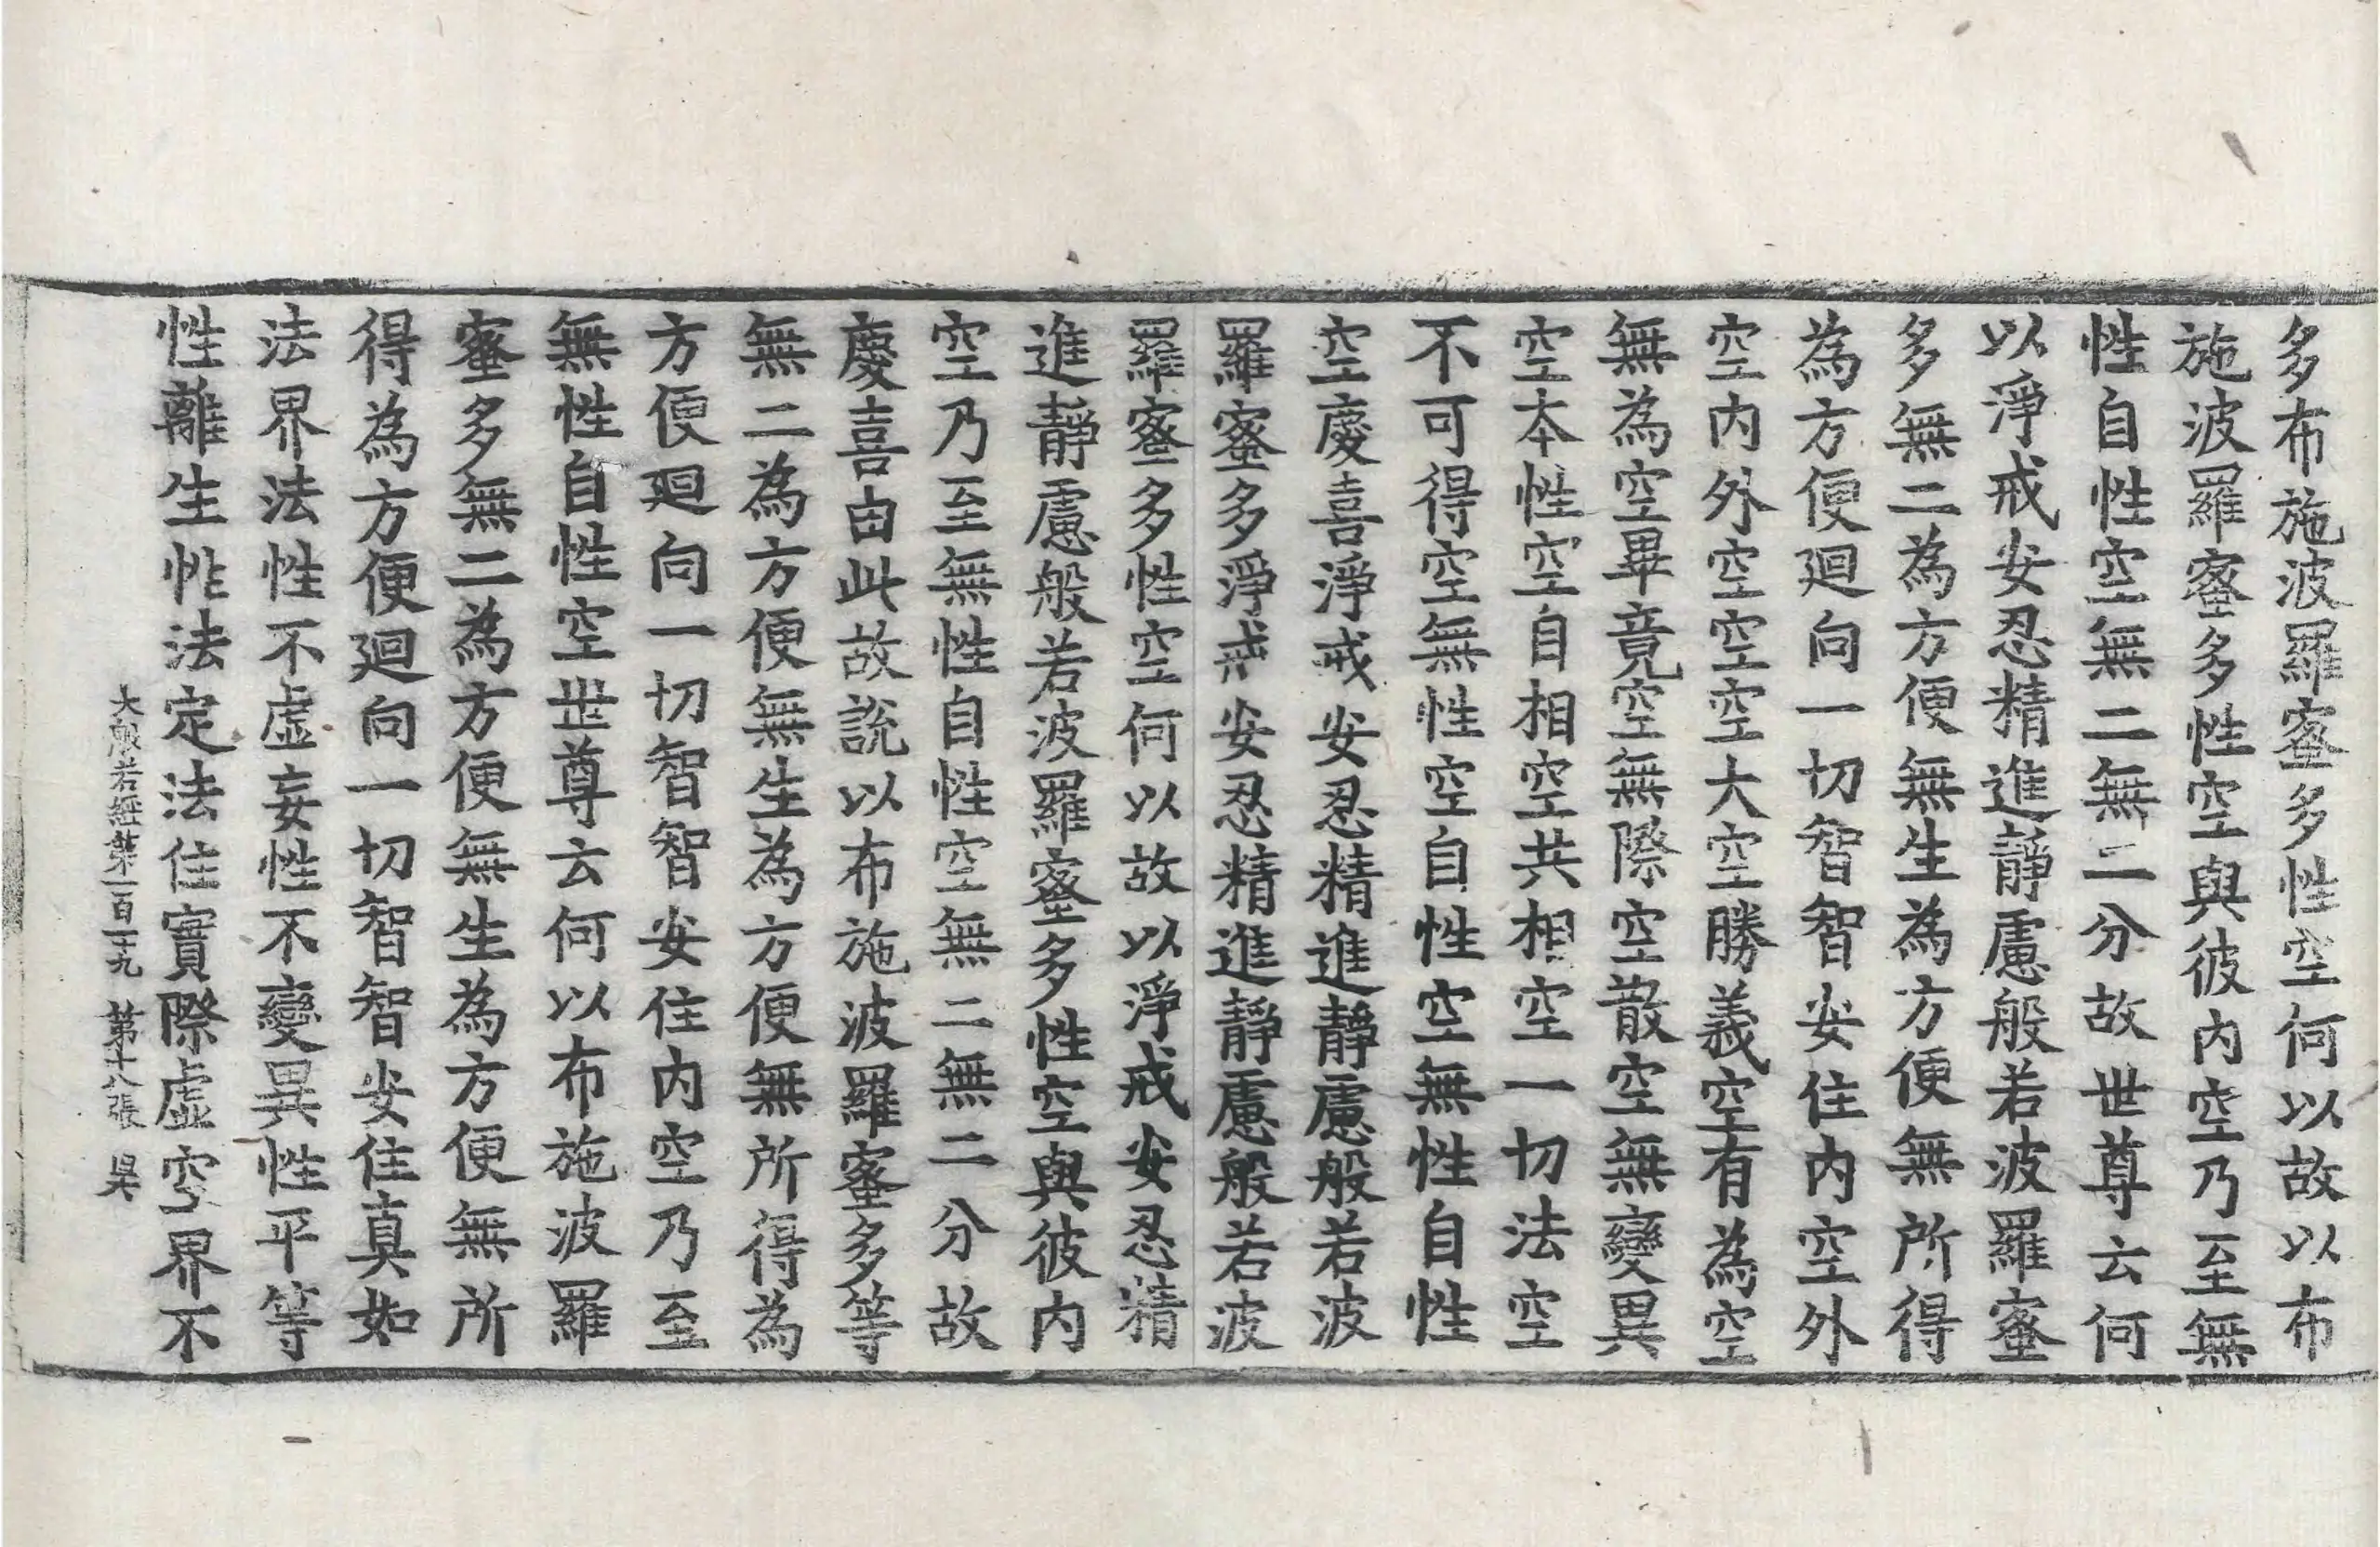 多布施波羅蜜多性空何以故以布
施波羅蜜多性空與彼内空乃至無
性自性空無二無二分故世尊云何
以淨戒安忍精進靜慮般若波羅蜜
多無二為方便無生為方便無所得
為方便廻向一切智智安住内空外
空内外空空空大空勝義空有為空
無為空畢竟空無際空散空無變異
空本性空自相空共相空一切法空
不可得空無性空自性空無性自性
空慶喜淨戒安忍精進靜慮般若波
羅蜜多淨戒安忍精進靜慮般若波
羅蜜多性空何以故以淨戒安忍精
進靜慮般若波羅蜜多性空與彼内
空乃至無性自性空無二無二分故
慶喜由此故說以布施波羅蜜多等
無二為方便無生為方便無所得為
方便廻向一切智智安住内空乃至
無性自性空世尊云何以布施波羅
蜜多無二為方便無生為方便無所
得為方便廻向一切智智安住真如
法界法性不虛妄性不變異性平等
性離生性法定法住實際虛空界不
大般若經第一百一十九 第十八張 昃